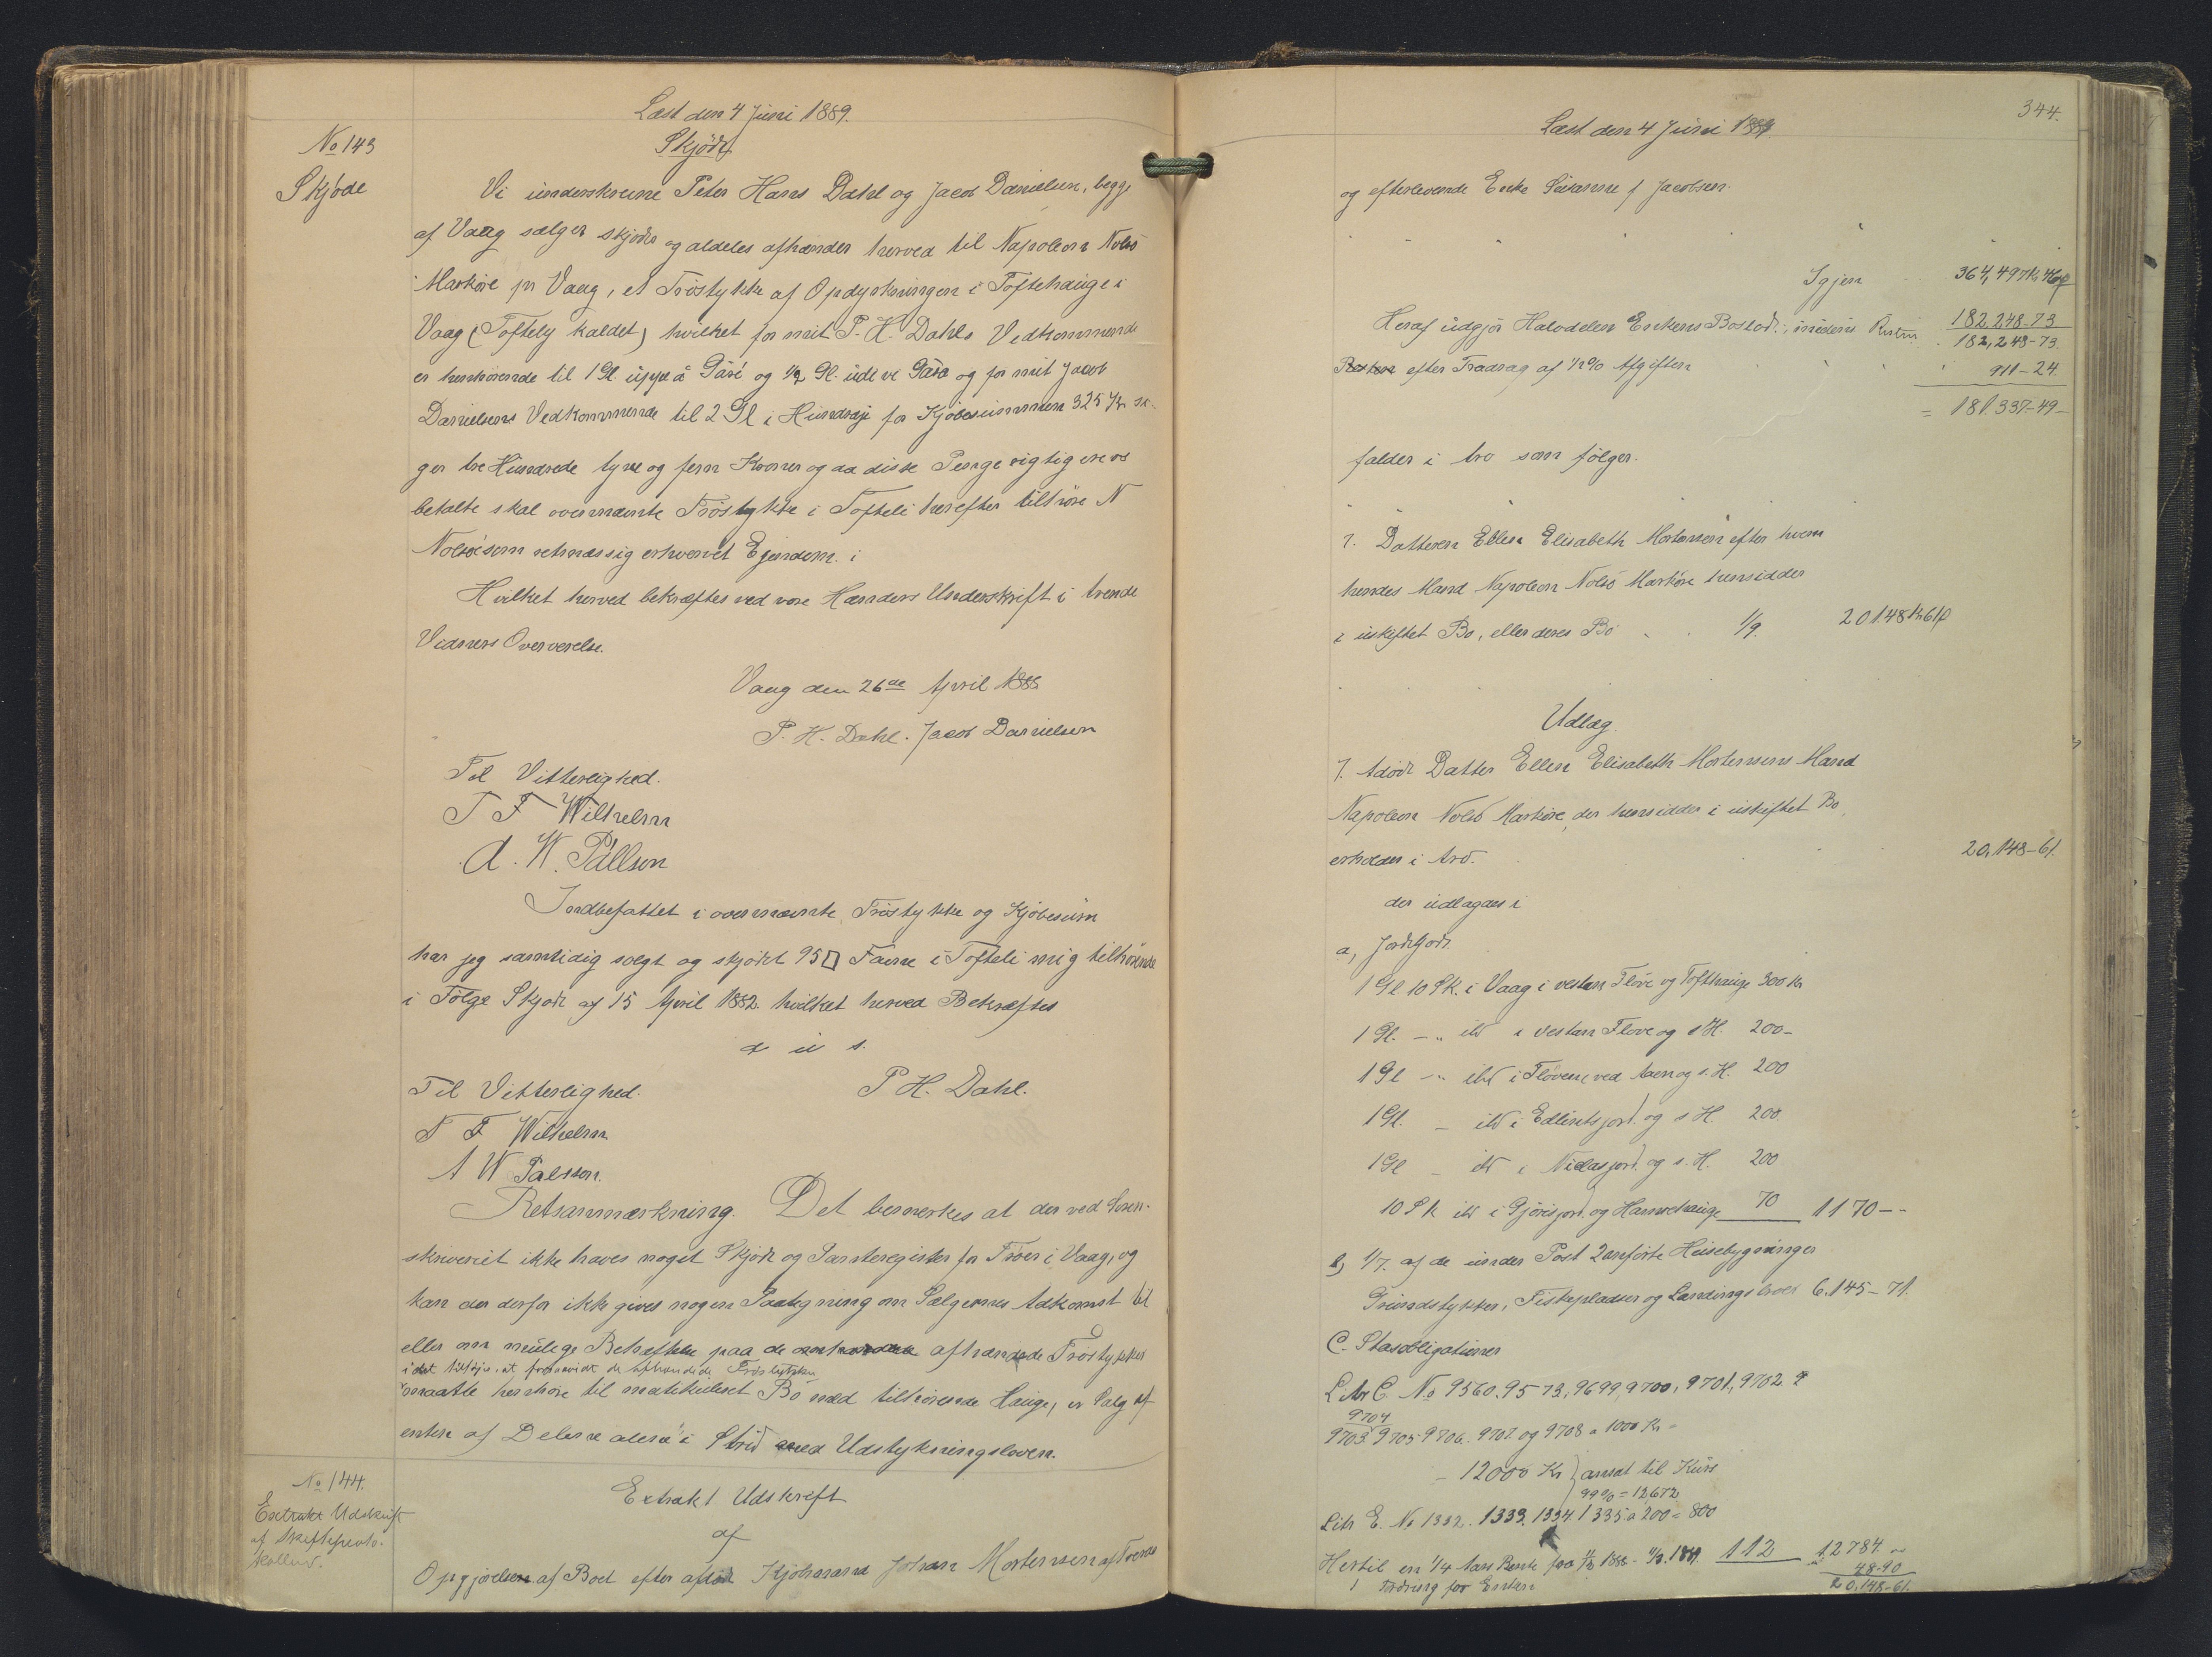 Læst den 4 Juni 1889.
No 143
Skjøde
Skjøde
Vi underskrevne Peter Hans Dahl og Jacob Danielsen, begge
af Vaag sælger skjøder og aldeles afhænder herved til Napoleon Nolsö
Markøre pr Vaag, et Tröstykke af Opdyrkningen i Toftehauge i
Vaag (Toftely kaldet) hvilket for mit P. H. Dahls Vedkommende
er henhörende til 1 Gl. uppe å og 1/2 Gl. ude ve og for mit Jacob
Danielsens Vedkommende til 2 Gl i for Kjøbesummen 325 Kr si-
ger tre Hundrede tyve og fem Kroner og da disse Penge rigtig ere os
betalte skal overnævnte Tröstykke i Tofteli herefter tilhöre N
Nolsö som retmæssig erhvervet Ejendom.
Hvilket herved bekræftes ved vore Hænders Underskrift i trende
Vidners Overværelse.
Vaag den 26de April 1888
P. H. Dahl. Jacob Danielsen
Til Vitterlighed.
T F Wilhelm
A. W. Pállson
Indbefattet i overnævnte Tröstykke og Kjöbesum
har jeg samtidig solgt og skjödet 95 □ Favne i Tofteli mig tilhörende
i Fölge Skjöde af 15 April 1882. hvilket herved Bekræftes
d u s.
Til Vitterlighed. P H. Dahl.
T F Wilhelm
A W Palsson.
Retsanmærkning. Det bemerkes at der ved Soren-
skriveriet ikke haves noget Skjöde og Panteregister for Tröer i Vaag, og
kan der derfor ikke gives nogen Paategning om Sælgernes Adkomst til
eller om mulige Behæftelser paa de afhændede Tröstykker
idet tilföjes. at forsaavidt de afhændede Tröstykker
maatte henhöre til matrikuleret Bö med tilhörende Hauge, er Salg af
enten af Delene alene i Strid med Udstykningsloven.
No 144.
Extrakt Udskrift
af Skifteproto-
kollen.
Extrakt Udskrift
af
Opgjörelsen af Boet efter afdöde Kjöbmand Johan Mortensen af Tveraa
344.
Læst den 4 Juni 1889
og efterlevende Enke Susanne f Jacobsen.
Igjen 364,497 Kr 46 Ø
Heraf udgjör Halvdelen Enkens Boslod, medens Resten 182,248-73
182,248-73
efter Fradrag af 1/2% Afgiften 911-24.
= 181.337-49-
falder i Arv som fölger.
7. Datteren Ellen Elisabeth Mortensen efter hvem
hendes Mand Napoleon Nolsö Marköre hensidder
i uskiftet Bo, eller deres Bo 1/9. 20148 Kr 61 Ø
Udlæg.
7. Afdöde Datter Ellen Elisabeth Mortensens Mand
Napoleon Nolsö Marköre, der hensidder i uskiftet Bo,
erholder i Arv. 20,148-61.
der udlægges i
a, Jordegods
1 Gl 10 Sk. i Vaag i vestan Flöve og Tofthauge 300 Kr
1 Gl. - " ibd i vestan Flöve og s H. 200-
1 Gl - " ibd i Flövene ved Aaen og s. H. 200
1 Gl. - ibd i jord. og s H. 200.
1 Gl - ibd i Niclasjord. og s. H. 200
10 Sk ibd i Gjórisjord. og Hamrehauge 70 1170--
b, 1/7. af de under Post 2 anförte Huusebygninger
Grundstykker, Fiskepladser og Landingsbroer 6.145-71.
C. Statsobligationer
Litr C. No 9560. 9573, 9699, 9700, 9701, 9702.
9704
9703. 9705 9706. 9707. og 9708 a 1000 Kr =
- 12000 Kr } ansat til Kurs
99 % = 12672
Litr E. No 1332. 1333. 1334. 1335. a 200 = 800
Hertil en 1/4 Aars Rente fra 11/12 1888 - 11/3. 1889. 112 12784.
i Fordring for Enken 48-90
20,148-61.